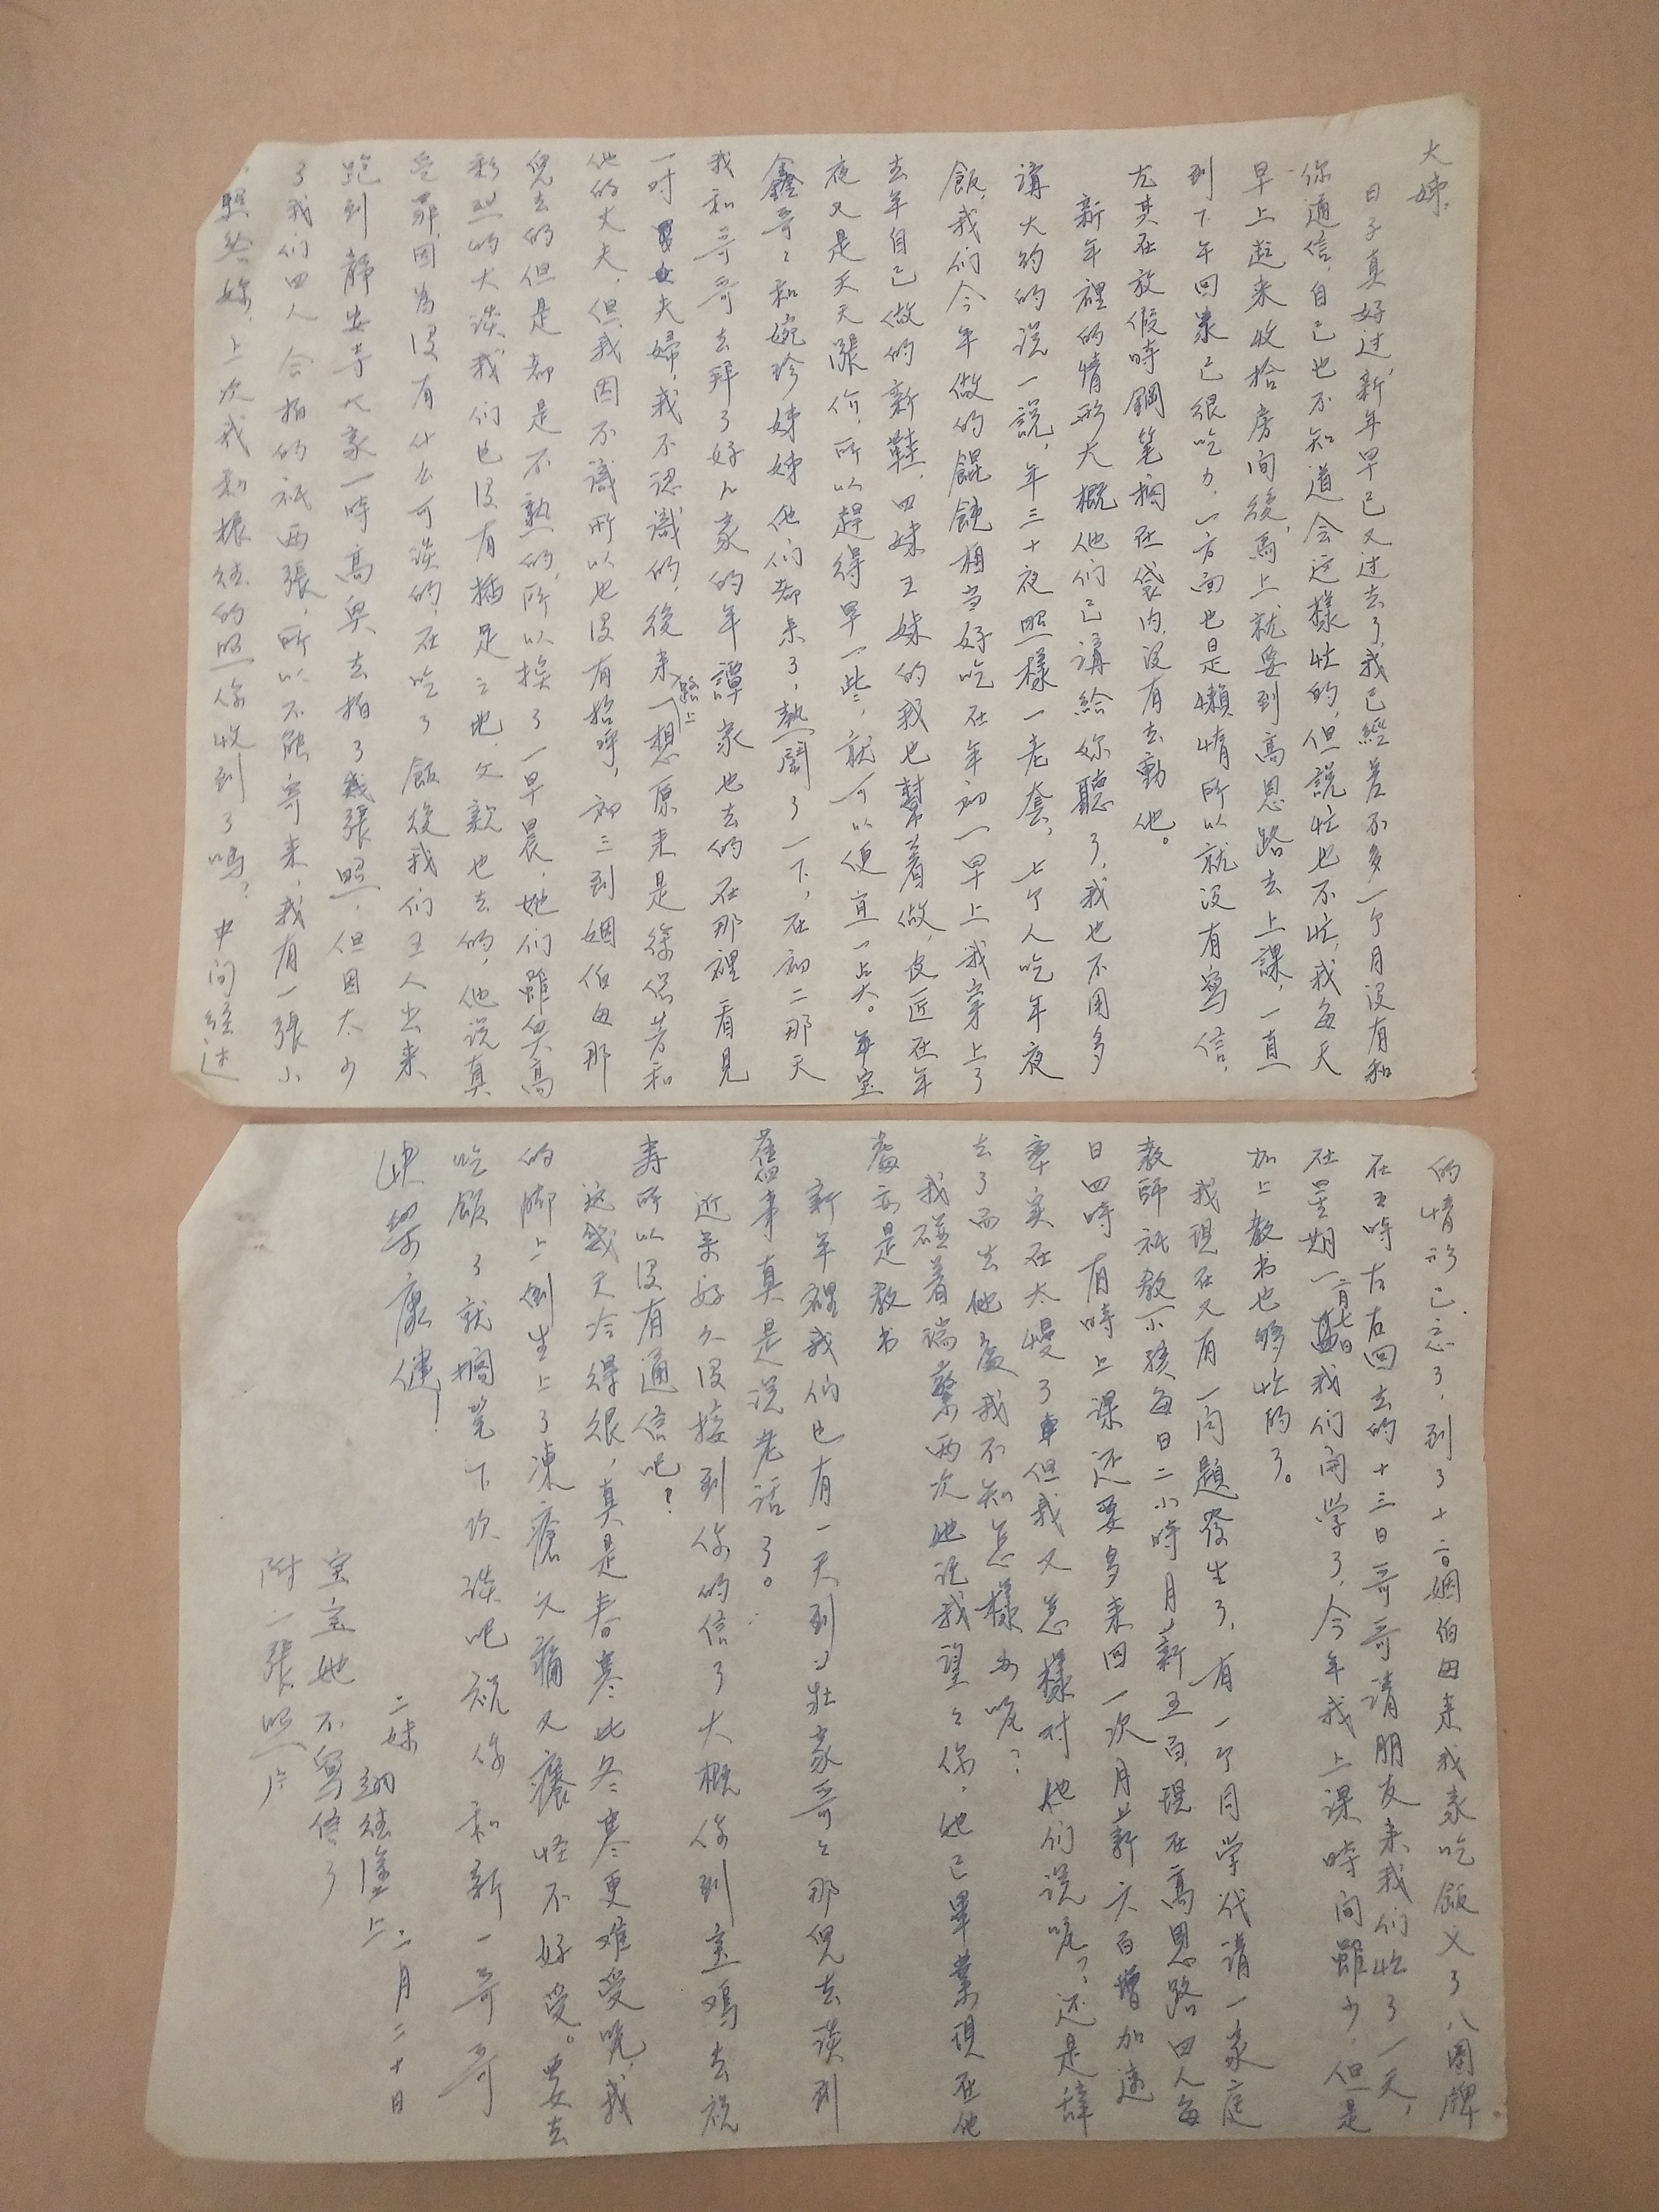 大姊:
日子真好过,新年早已又过去了,我已經差不多一个月没有和
你通信,自己也不知道会这樣忙的,但說忙也不忙,我每天
早上起来收拾房间後,馬上就要到高恩路去上課,一直
到下午回家已很吃力,一方面也是懶惰所以就没有寫信,
尤其在放假時鋼笔擱在袋内,没有去動他。
新年裡的情形大概他们已講給妳聽了,我也不用多
講大約的说一說,年三十夜照樣一老套,七个人吃年夜
飯,我们今年做的餛飩相当好吃在年初一早上我穿上了
去年自己做的新鞋,四妹五妹的我也幫着做,皮匠在年
夜又是天天漲价,所以趕得早一些,就可以便宜一点。年宝
鑫哥哥和婉珍姊姊他们都来了,熱鬧了一下,在初二那天
我和哥哥去拜了好几家的年譚家也去的在那裡看見
一对夫婦,我不認識的,後来路上一想原来是徐佩芳和
他的丈夫,但我因不識所以也没有招呼,初三到姻伯母那
兒去的但是都是不熟的,所以挨了一早晨,她们雖興高
彩烈的大談,我们也没有插足之地,父親也去的,他说真
受罪,因為没有什么可談的,在吃了飯後我们五人出来
跑到靜安寺大家一時高興去拍了幾張照,但因太少
了我们四人合拍的祇兩張,所以不能寄来,我有一張小
照给妳,上次我和振弦的照你收到了嗎?中间經过
的情形已忘了,到了十二日姻伯母来我家吃飯又了八圈牌
在五時左右回去的十三日哥哥请朋友来我们忙了一天,
在星期一二月七日我们開学了,今年我上课時间雖少,但是
加上教书也够忙的了。
我現在又有一问題發生了,有一个同学代请一家庭
教師祇教小孩每日二小時月薪五百,現在高恩路四人每
日四時有時上课还要多来回一次月薪六百增加速
率实在太慢了但我又怎樣对他们说呢?还是辞
去了而去他處我不知怎樣办呢?
我碰着瑞蘩两次她说我望望你,她已畢業現在他
處亦是教书
新年裡我们也有一天到壮豪哥哥那兒去谈到
舊事真是说老话了。
近来好久没接到你的信了大概你到宝鸡去祝
寿所以没有通信吧?
这幾天冷得很,真是春寒比冬寒更难受呢,我
的脚上倒生上了凍瘡又痛又癢怪不好受。要去
吃飯了就擱笔下次谈吧祝你和新一哥哥
快樂康健!
二妹 弦塗上 二月二十日
宝宝她不寫信了
附一張照片